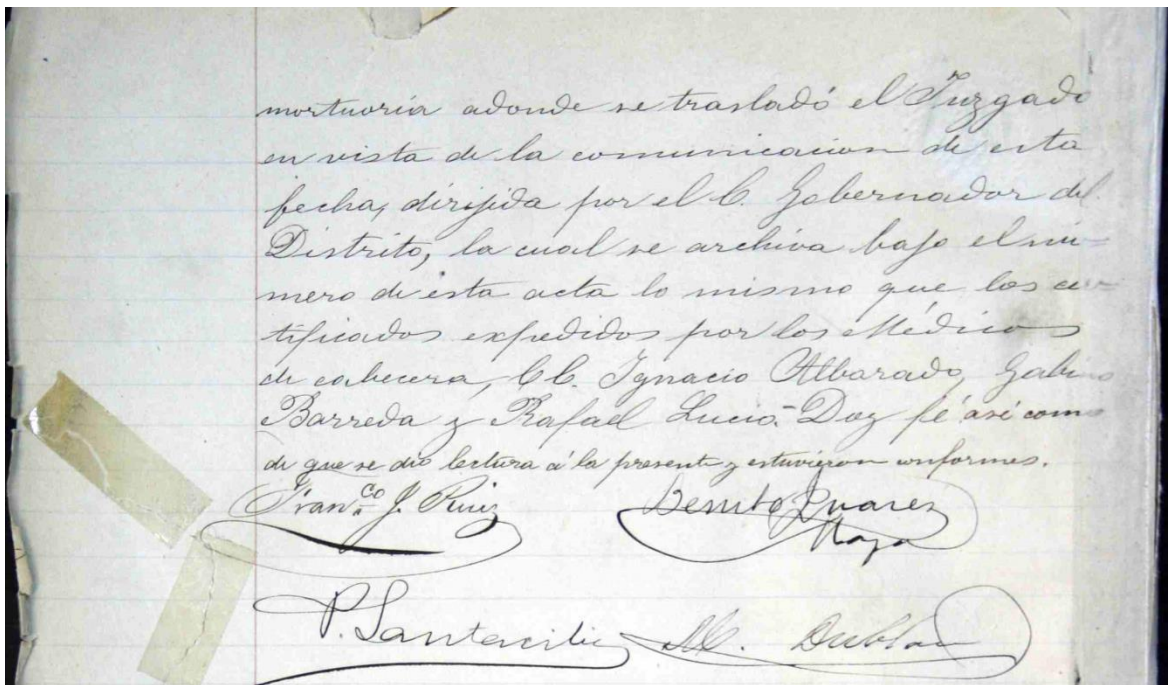 mortuoria adonde se trasladó el Juzgado
en vista de la comunicacion de esta
fecha, dirijida por el C. Gobernador del
Distrito, la cual se archiva bajo el nú=
mero de esta acta lo mismo que los cer-
tificados expedidos por los Médicos
de cabecera, CC. Ignacio Albarado, Gabino
Barreda y Rafael Lucio.- Doy fé así como
de que se dio lectura á la presente y estuvieron conformes.
Fran.co J. Ruiz Benito Juarez
Maza
P. Santacilia M. Dublan